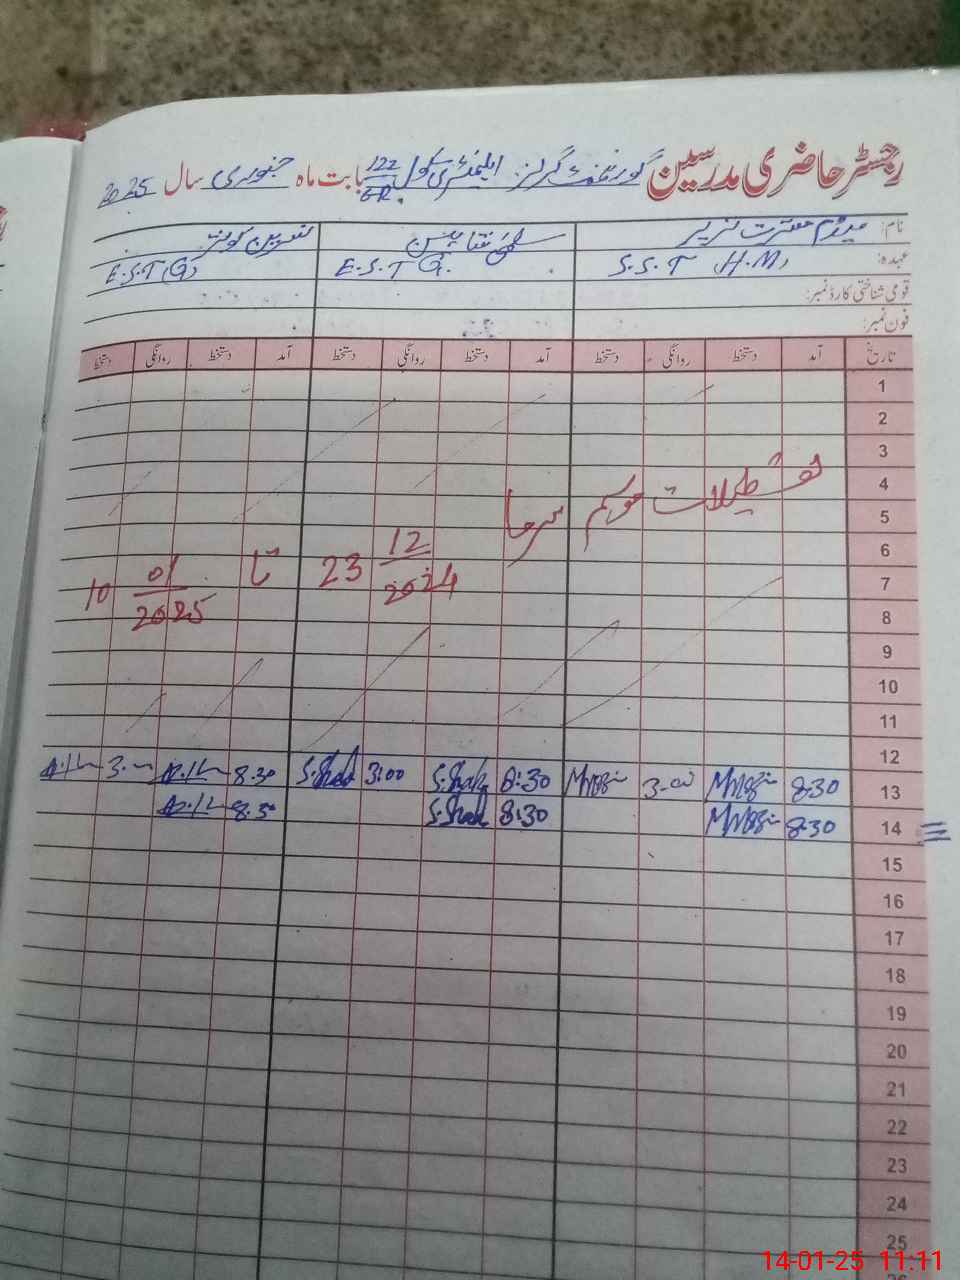 رجسٹر حاضری مدرسین گورنمنٹ گرلز ایلیمنٹری سکول 122/GR بابت ماہ جنوری سال 2025
نام: میڈم عشرت نذیر سلمیٰ نسرین کوثر
عہدہ: S.S.T (H.M) E.S.T G. E.S.T (G)
قومی شناختی کارڈ نمبر:
فون نمبر:
تاریخ آمد دستخط روانگی دستخط آمد دستخط روانگی دستخط آمد دستخط روانگی دستخط
1
2
3
4
تعطیلات موسم سرما
5
6
23 12/2024 تا 10 01/2025
7
8
9
10
11
12
13 8.30 3-00 8:30 S.Shad 3:00 S.Shad 8.30 3.
14 8.30 8:30 S.Shad 8.30
15
16
17
18
19
20
21
22
23
24
25
14-01-25 11:11